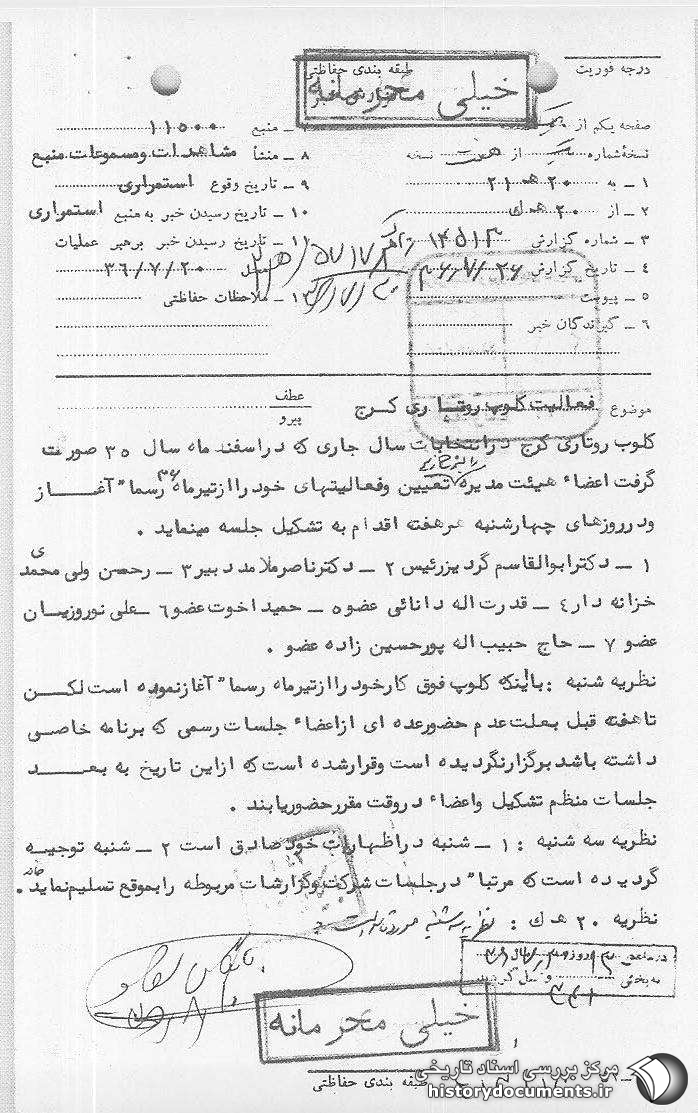 درجه فوریت
طبقه بندی حفاظتی
خیلی محرمانه
صفحه یکم از
نسخه شماره از نسخه
۱ ـ به ۲۰ هـ ۲۱
۲ ـ از ۲۰ هـ ك
۳ ـ شماره گزارش
۴ ـ تاریخ گزارش
۵ ـ پیوست
۶ ـ گیرندگان خبر
۷ ـ منبع ۱۱۵۰۰
۸ ـ منشأ مشاهدات ومسموعات منبع
۹ ـ تاریخ وقوع استمراری
۱۰ ـ تاریخ رسیدن خبر به منبع استمراری
۱۱ ـ تاریخ رسیدن خبر برهبر عملیات
محل ۳۶/۷/۲۰
۱۳ ـ ملاحظات حفاظتی
موضوع فعالیت کلوپ روتاری کرج
عطف
پیرو
کلوب روتاری کرج درانتخابات سال جاری که دراسفند ماه سال ۳۵ صورت
گرفت اعضاء هیئت مدیره تعیین وفعالیتهای خود راازتیرماه ۳۶ رسما" آغاز
ودرروزهای چهارشنبه هرهفته اقدام به تشکیل جلسه مینماید .
۱ ـ دکترابوالقاسم گردیزرئیس ۲ ـ دکترناصرملامدد بیر ۳ ـ رحسن ولی محمدی
خزانه دار ٤ ـ قدرت اله دانائی عضو ٥ ـ حمید اخوت عضو ٦ ـ علی نوروزیان
عضو ۷ ـ حاج حبیب اله پورحسین زاده عضو .
نظریه شنبه : بااینکه کلوپ فوق کارخود راازتیرماه رسما" آغازنموده است لکن
تاهفته قبل بعلت عدم حضورعده ای ازاعضاء جلسات رسمی که برنامه خاصی
داشته باشد برگزارنگردیده است وقرارشده است که ازاین تاریخ به بعد
جلسات منظم تشکیل واعضاء دروقت مقررحضوریابند .
نظریه سه شنبه : ۱ ـ شنبه دراظهارات خود صادق است ۲ ـ شنبه توجیه
گردیده است که مرتبا" درجلسات شرکت وگزارشات مربوطه رابموقع تسلیم نماید .
نظریه ۲۰ هـ ك : نظریه سه شنبه مورد تائید است
خیلی محرمانه
طبقه بندی حفاظتی
مرکز بررسی اسناد تاریخی
historydocuments.ir